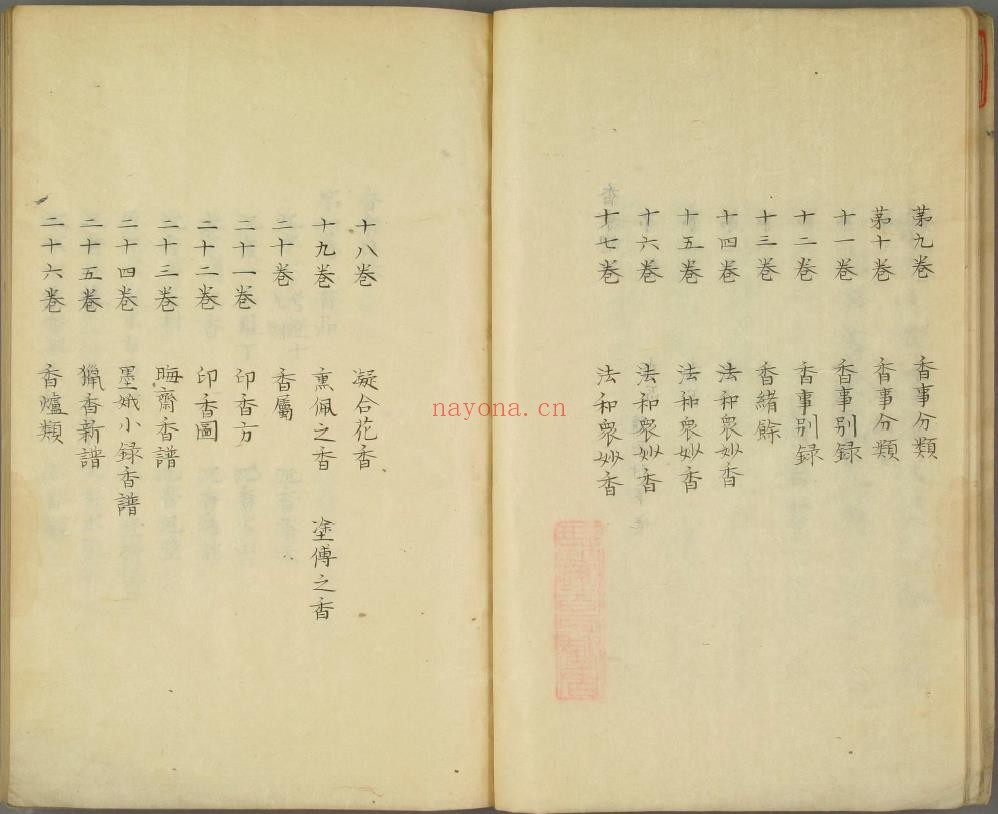 第九卷 香事分類
第十卷 香事分類
十一卷 香事别録
十二卷 香事别録
十三卷 香緒餘
十四卷 法和衆妙香
十五卷 法和衆妙香
十六卷 法和衆妙香
十七卷 法和衆妙香
十八卷 凝合花香
十九卷 熏佩之香 塗傅之香
二十卷 香屬
二十一卷 印香方
二十二卷 印香圖
二十三卷 晦齋香譜
二十四卷 墨娥小録香譜
二十五卷 獵香新譜
二十六卷 香爐類
nayona.cn